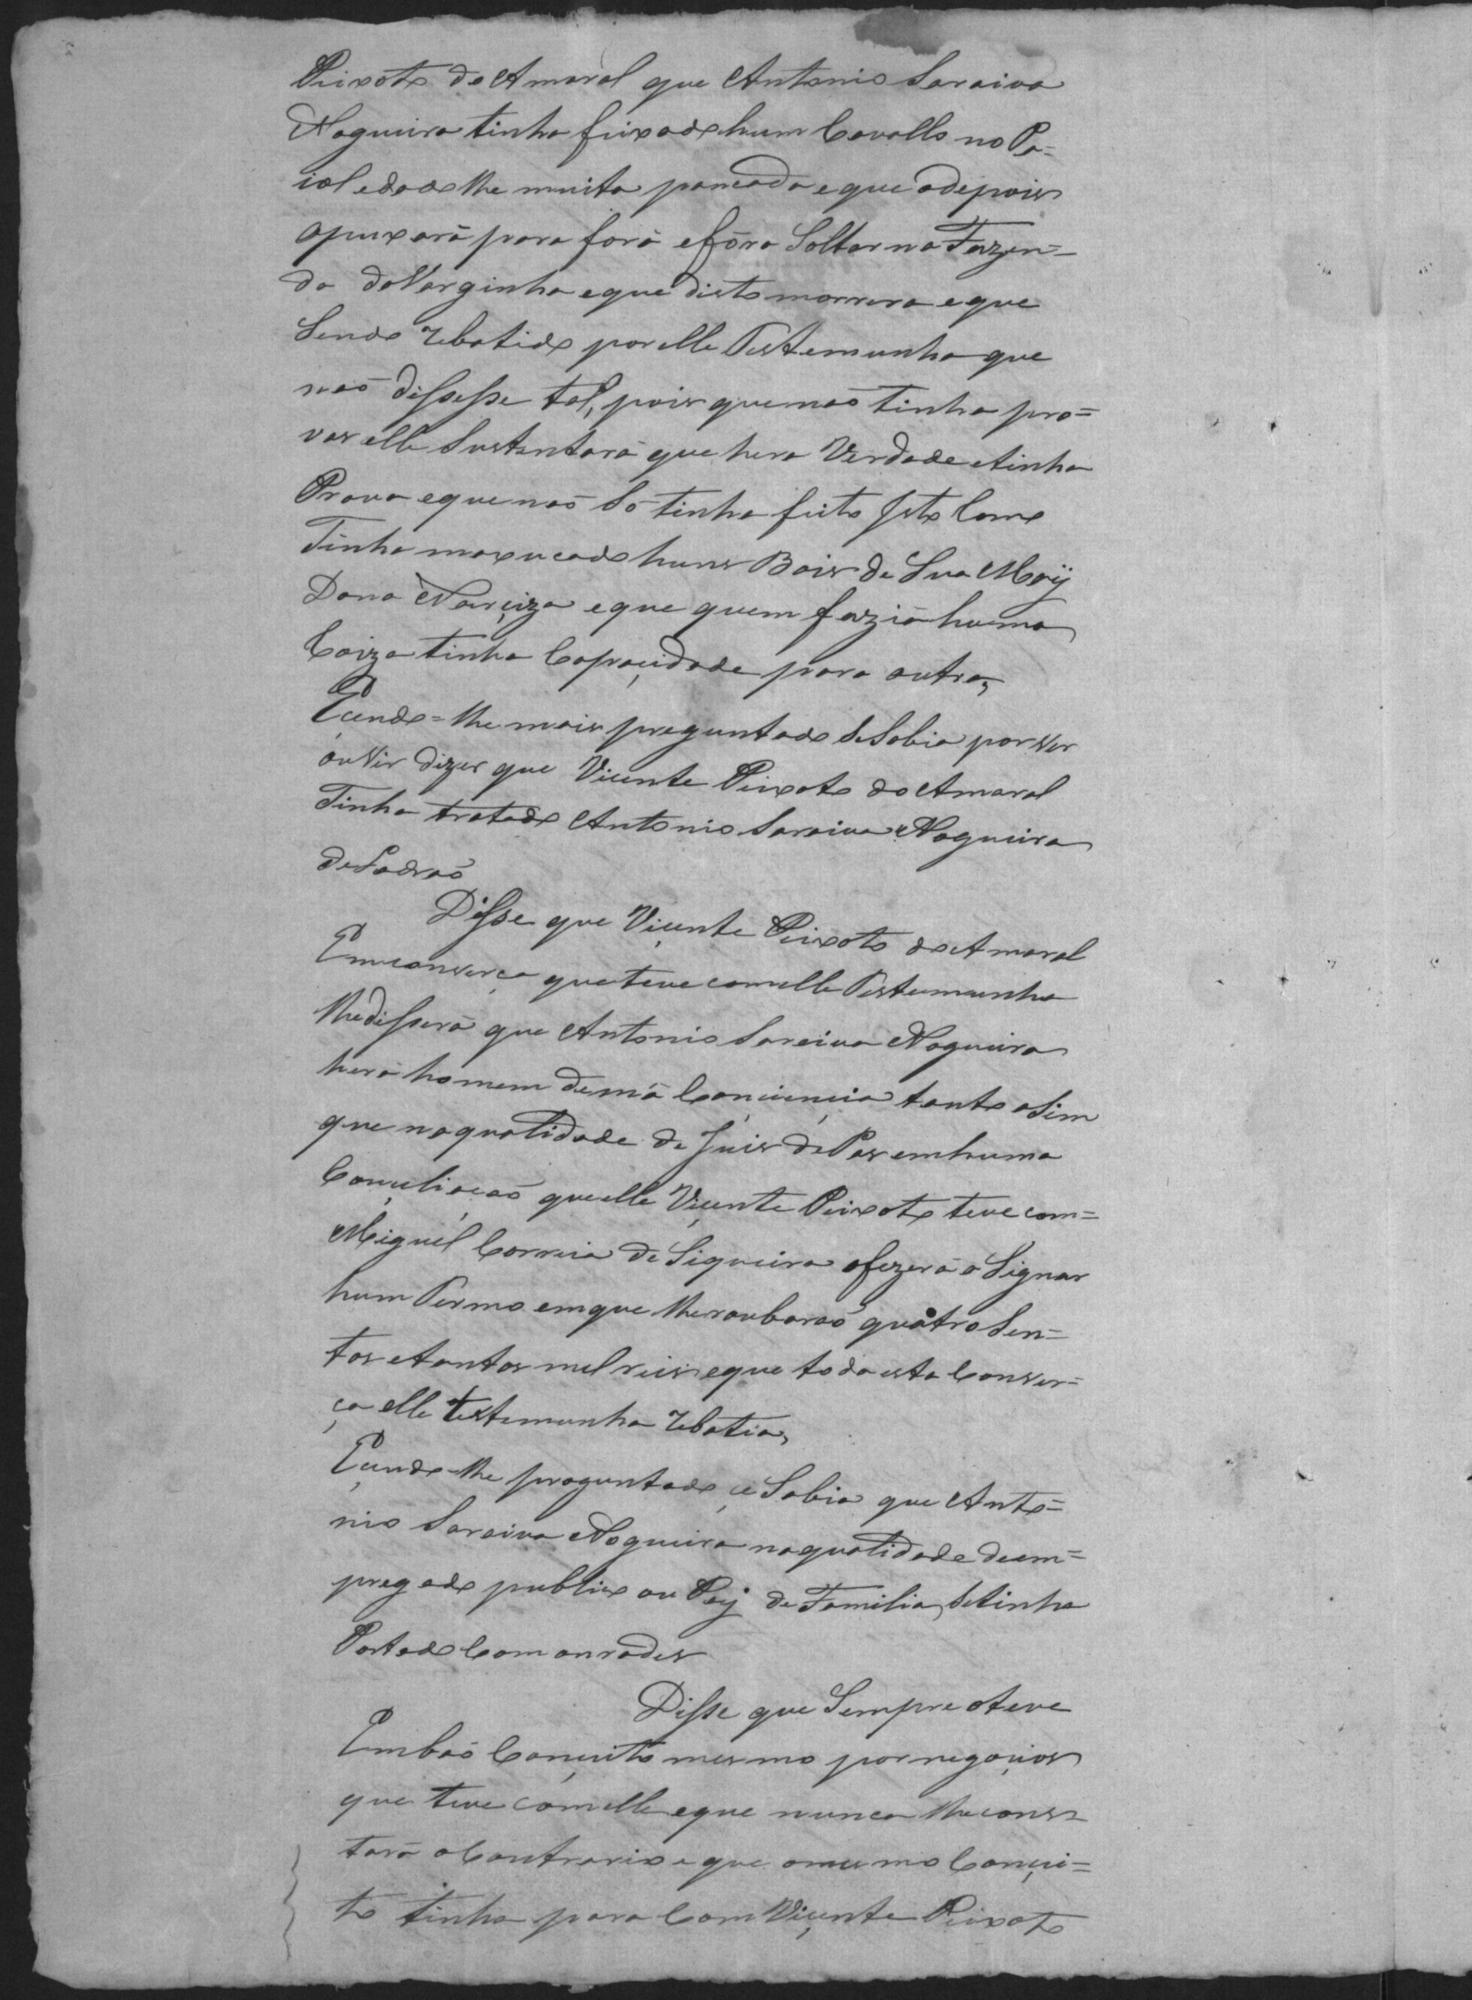 Peixoto do Amaral que Antonio Saraiva
Nogueira tinha feixado hum Cavallo no Pa=
iol e dadolhe muita pancada e que adepois
apuxará para fora e fôra Soltar na Fazen=
da da Varginha e que disto morrera e que
Sendo rebatido por elle Testemunha que
naõ dissesse tal, pois que naõ tinha pro=
vas elle Sustentará que hera Verdade e tinha
Prova e que naõ Só tinha feito isto Como
Tinha maxucado huns Bois de Sua Maÿ
Dona Narciza e que quem faziá huma
Coiza tinha Capacidade para outra,
Esendo=lhe mais preguntado Se Sabia por ver
ou vir dizer que Vicente Peixoto do Amaral
Tinha tratado Antonio Saraiva Nogueira
de Ladraõ
Disse que Viçente Peixoto do Amaral
Em converça que teve com elle Testemunha
lhe dissera que Antonio Saraiva Nogueira
hera homem de má Conciencia tanto asim
que na qualidade de Juis de Pas em huma
Conçiliacaõ que elle Viçente Peixoto teve com=
Miguel Correia de Siqueira o fizera a Signar
hum Termo em que lhe roubaraõ quatro Sen=
tos e tantos mil reis e que toda esta Conver=
ça elle testemunha rebatia,
Eçendo-lhe preguntado çe Sabia que Anto=
nio Saraiva Nogueira na qualidade de em=
pregado publico ou Paÿ de Familia, Se tinha
Portado Com onrades
Disse que Sempre o teve
Em boõ Conçeito mesmo por negoçios
que teve com elle e que nunca lhe cons=
tará o Contrario e que o mesmo Conçei=
to tinha para Com Viçente Peixoto